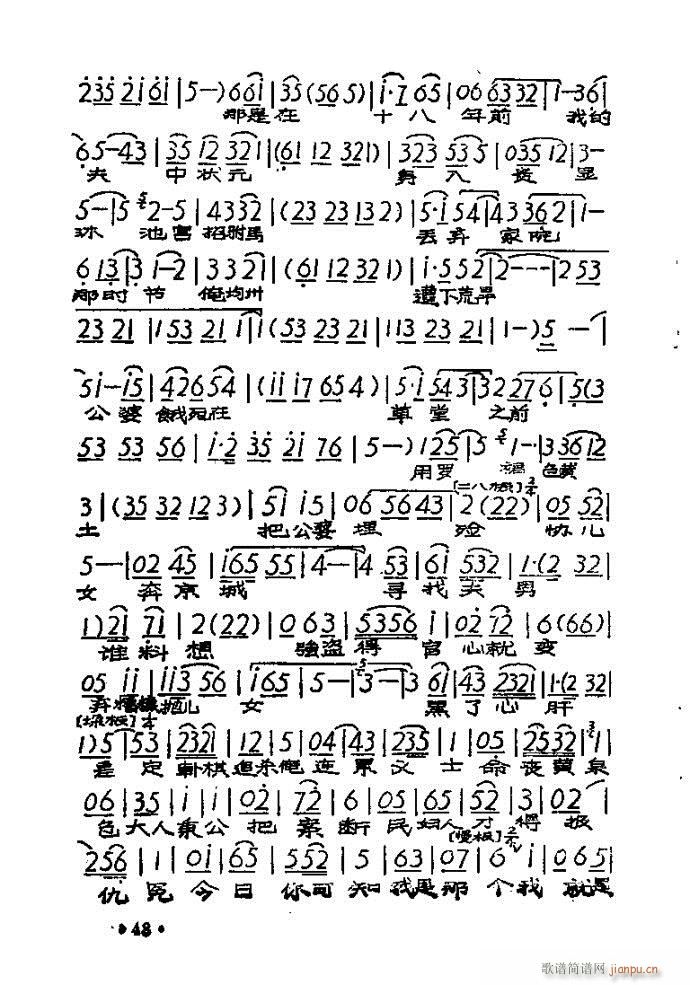 235 2i 6i | 5—) 66i | 35 (56 5) | i·7 65 | 06 63 32 | 1—36 |
那是在 十八 年前 我的
65—43 | 35 12 321 | (61 12 321) | 323 535 | 035 12 | 3—
夫 中状元 身入 贵 显
5—|5 2—5 | 4332 | (23 23 13 2) | 5·i 54 | 43 362 | 1—
环 池宫招驸马 丢弃 家院
6 13 | 3 1—2 | 3 3 21 | (61 12 321) | i·552 | 2———| 2 53
那时节 俺均州 遭下荒旱
23 21 | 153 23 21 1 | (53 23 21) | 113 23 21 | 1—) 5—|
5i—i5 | 42654 | (ii i7 65 4) | 5·i 543 | 3 227 6 | 5(3
公婆饿死在 草堂 之前
53 53 56 | i·2 35 2i 76 | 5—) 125 | 5 1·— | 33612
用罗 裙 包黄
[二八板]
3 | (35 32 123) | 5i i5 | 06 5643 | 2 (22) | 05 52 |
土 把公婆埋 殓 协儿
5—| 02 45 | i65 55 | 4—| 4 53 | 6i 532 | 1·(2 32 |
女 奔京城 寻找夫男
1) 2i 7i | 2 (22) | 0 63 | 5356 | i | 02 72 | 6 (66) |
谁料想 强盗得 官心就变
05 ii | ii3 56 | i65 | 5—| 3—| 3 6i | 43 232 | 1·(2 32 |
弃糟糠抛儿 女 黑了心肝
[垛板]
1) 5 | 53 | 2321 | 12 | 5 | 04 | 43 | 235 | 1 | 05 | 2532 | 1
差定韩棋追杀俺连累义士命丧黄泉
06 | 35 | i | i | 02 | 72 | 6 | 05 | 65 | 52 | 3 | 02 |
包大人秉公把案断民妇人才得报
[慢板]
256 | 1 | 0i | 65 | 552 | 5 | 63 | 07 | 6 | i | 065
仇冤今日你可知我是那个我就是
•48•
歌谱简谱网 jianpu.cn